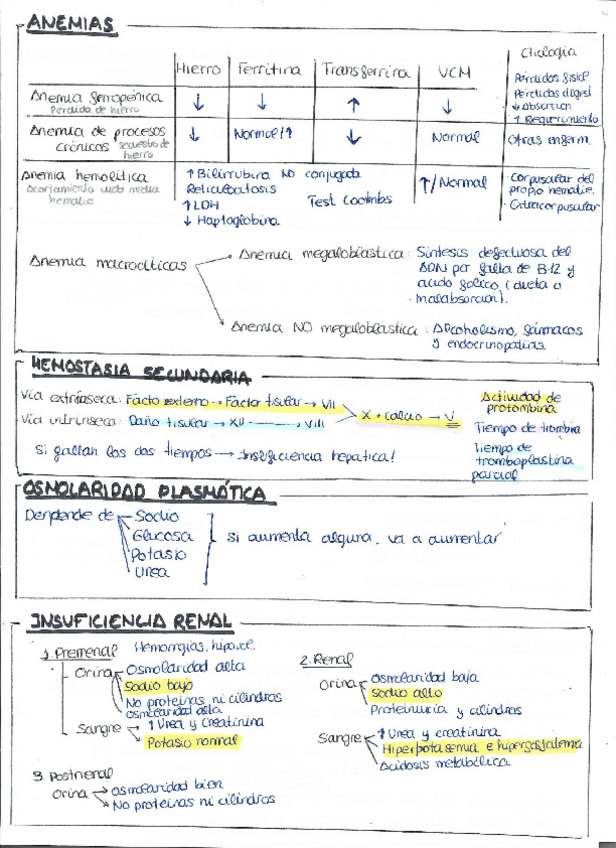 ANEMIAS
Hierro Ferritina Transferrina VCM Etiología
Anemia ferropénica ↓ ↓ ↑ ↓ Pérdidas fisiol
Pérdida de hierro Pérdidas digest
↓ Absorción
↑ Requerimiento
Anemia de procesos ↓ Normal/↑ ↓ Normal Otras enferm.
crónicos secuestro de hierro
Anemia hemolítica ↑ Bilirrubina NO conjugada ↑/Normal · Corpuscular del
Acortamiento vida media Reticulocitosis Test Coolmbs propio hematíe.
hematíe ↑ LDH · Extracorpuscular
↓ Haptoglobina
Anemia macrocíticas
Anemia megaloblástica: Síntesis defectuosa del
ADN por falta de B12 y
ácido fólico, (dieta o
malabsorción).
Anemia NO megaloblástica: Alcoholismo, fármacos
y endocrinopatías.
HEMOSTASIA SECUNDARIA
Vía extrínseca: Facto externo → Factor tisular → VII
Vía intrínseca: Daño tisular → XII → VIII
X + calcio → V
Actividad de
protombina
Tiempo de trombina
Tiempo de
tromboplastina
parcial
Si fallan los dos tiempos → Insuficiencia hepática!
OSMOLARIDAD PLASMÁTICA
Depende de Sodio
Glucosa
Potasio
Urea
si aumenta alguna, va a aumentar
INSUFICIENCIA RENAL
1. Prerrenal Hemorragias, hipovol.
Orina Osmolaridad alta
Sodio bajo
No proteínas ni cilindros
Sangre Osmolaridad alta
↑ Urea y creatinina
Potasio normal
2. Renal
Orina Osmolaridad baja
Sodio alto
Proteinuria y cilindros
Sangre ↑ Urea y creatinina
Hiperpotasemia e hiperfosfatemia
Acidosis metabólica
3. Postrrenal
Orina → Osmolaridad bien
No proteínas ni cilindros